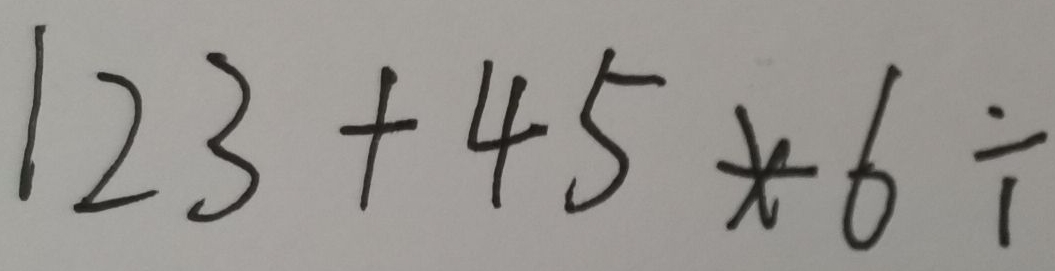 123 + 45 * 6 ÷